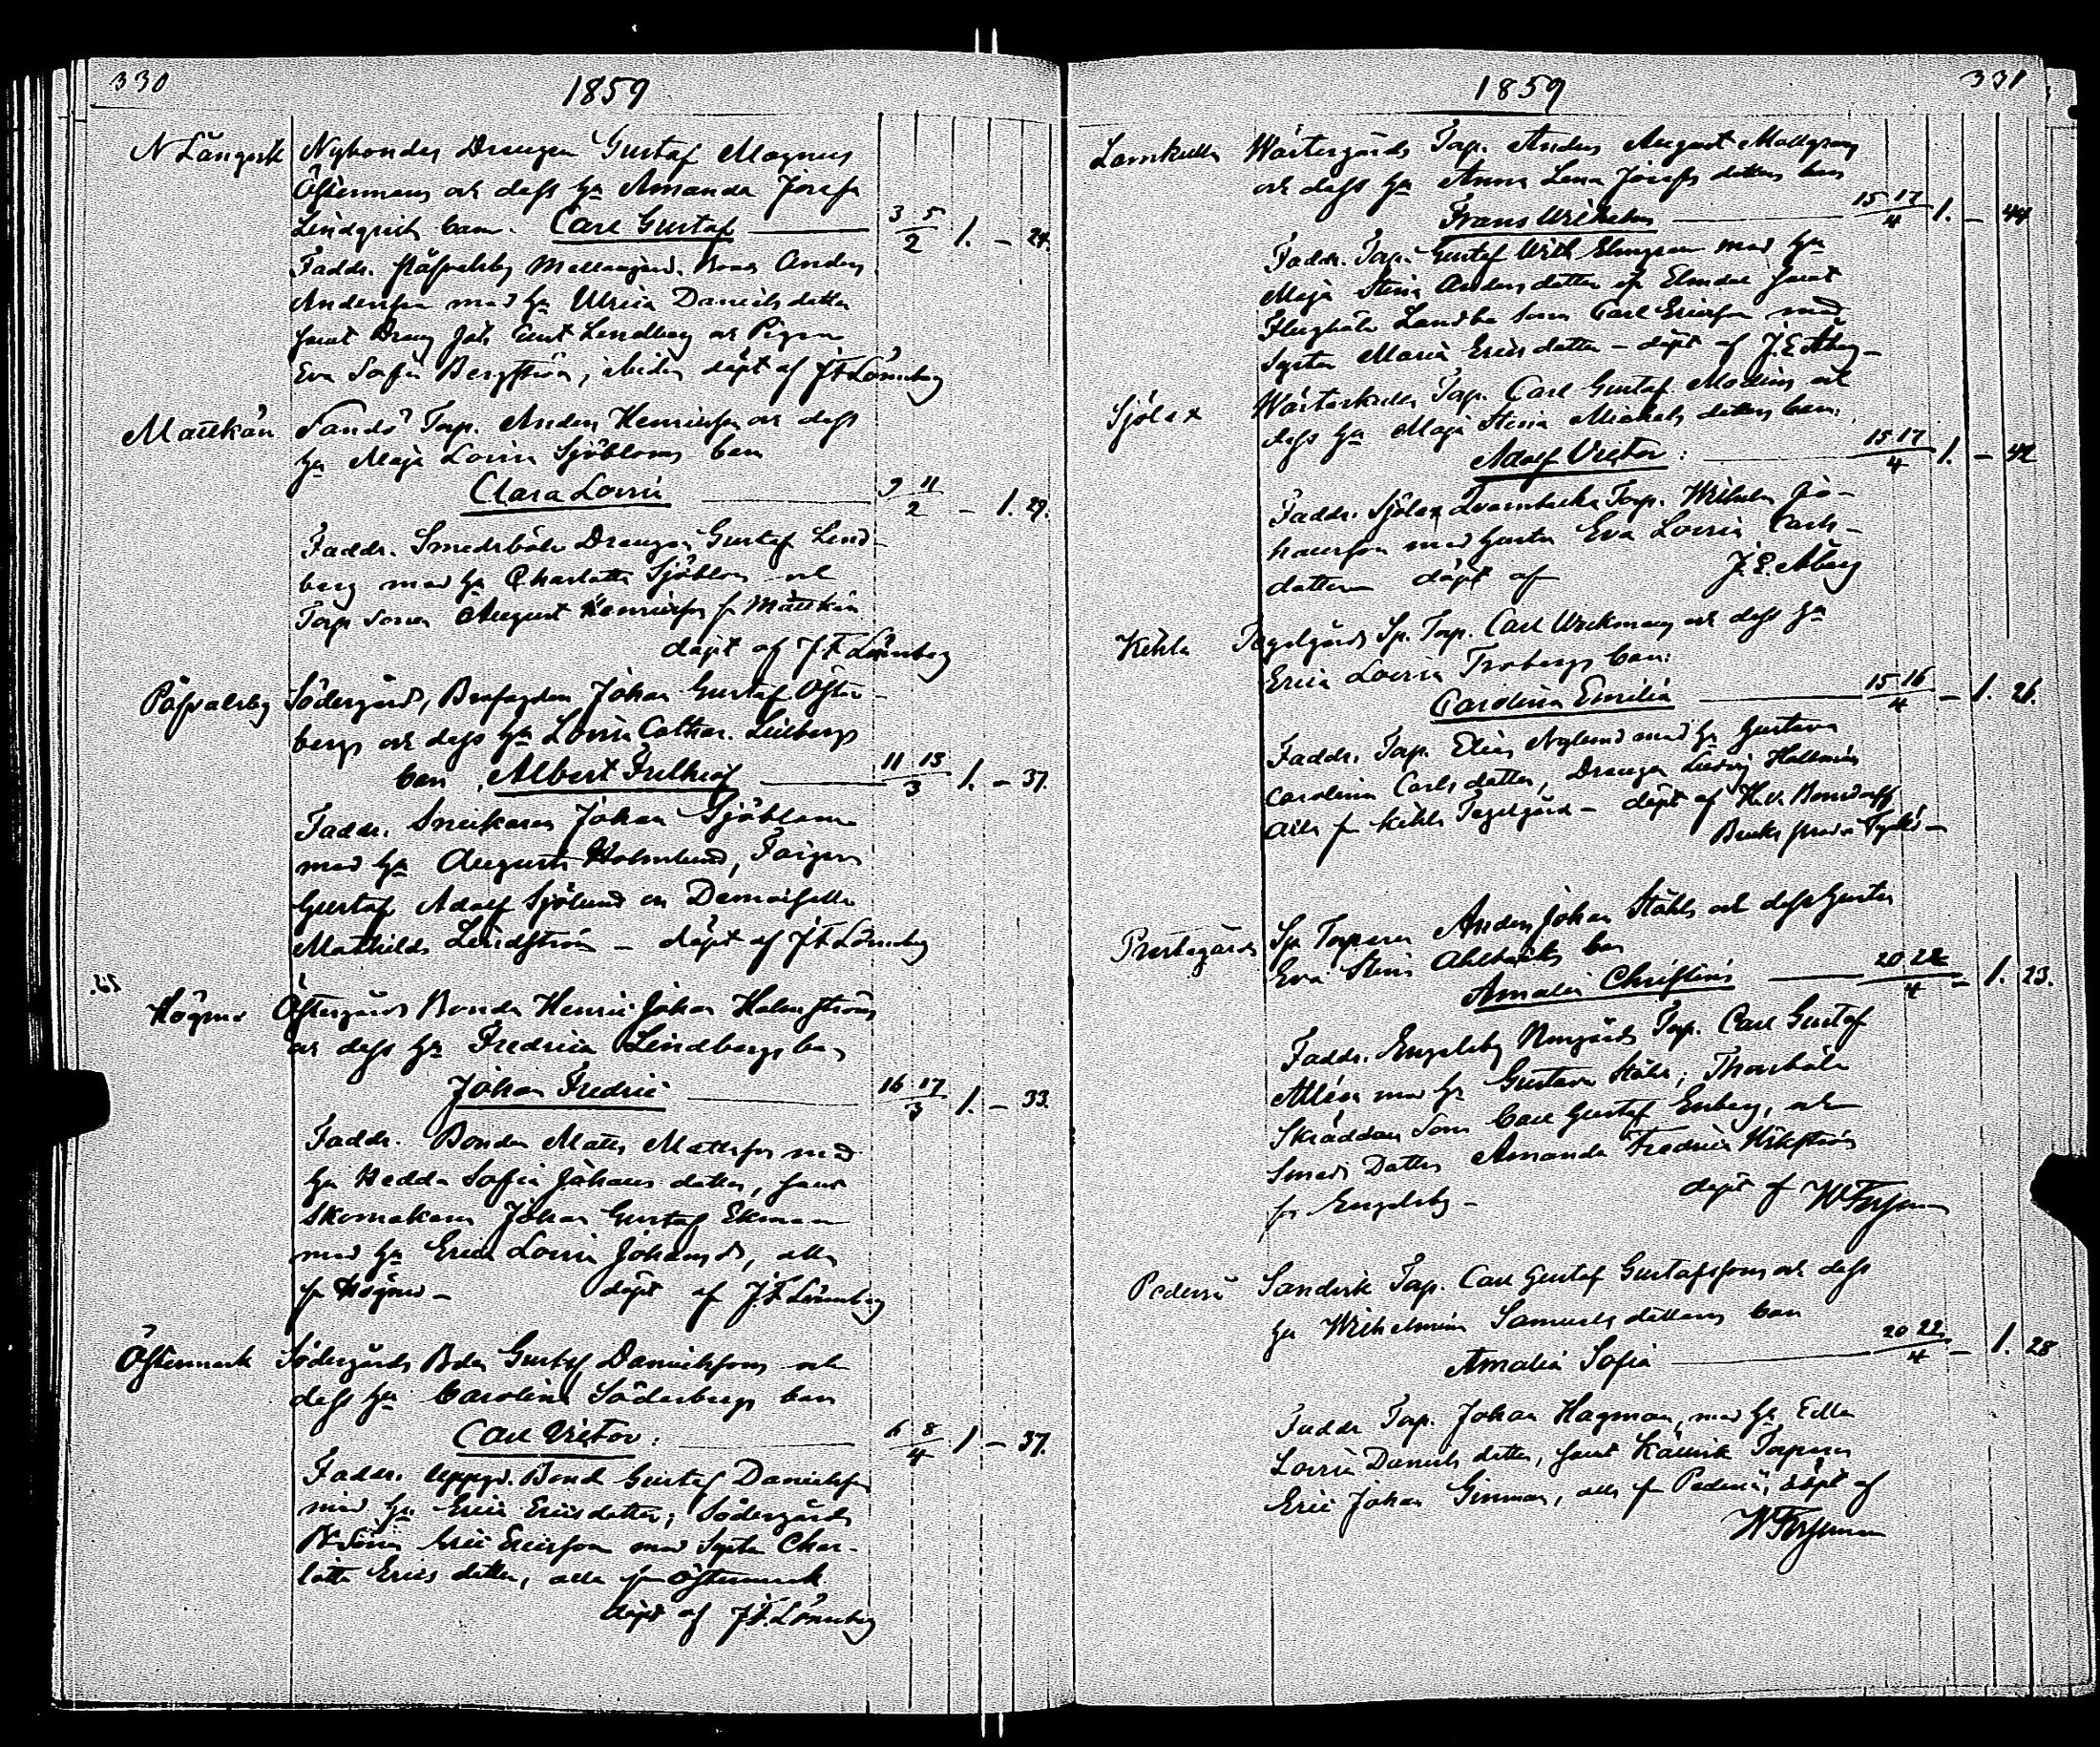 330
1859
N Långvik Nybondes Drengen Gustaf Magnus
Östermans och dess hu Amanda Josefa
Lindqvists barn. Carl Gustaf 3 5/2 1. – 24.
Faddr. Påfvalsby Mellangård. Bond. Anders
Andersson med hu Ulrica Danielsdotter
samt Dräng Joh. Lindberg och Pigan
Eva Sofia Bergström, döpt af J F Lönnberg
Mattkärr Sandö Torp. Anders Henriksson och dess
hu Maja Lovisa Sjöbloms barn
Clara Lovisa 9 11/2 – 1. 29.
Faddr. Smedsböle Drengen Gustaf Lind-
berg med hu Charlotta Sjöblom och
Torp. Sonen August Henriksson fr Mattkärr
döpt af J F Lönnberg
Påfvalsby Södergård, Johan Gustaf Öster-
bergs och dess hu Lovisa Cathar. Lillbergs
barn, Albert Frithiof 11 13/3 1. – 37.
Faddr. Snickaren Johan Sjöblom
med hu Augusta Holmlund,
Gustaf Adolf Sjölund och Demoiselle
Mathilda Lindström – döpt af J F Lönnberg
Högmo Östergårds Bonden Henric Johan Holmströms
och dess hu Fredrica Lindbergs barn
Johan Fredric 16 17/3 1. – 33.
Faddr. Bonden Matts Mattsson med
hu Hedda Sofia Johans dotter, samt
Skomakaren Johan Gustaf Ekman
med hu Erica Lovisa Johansdr, alla
fr Högmo – döpt af J. F. Lönnberg
Östermark Södergårds Bden Gustaf Danielssons och
dess hu Carolina Söderbergs barn
Carl Victor. 6 8/4 1 – 37.
Faddr. Uppgd. Bond. Gustaf Danielsson
med hu Erica Ericsdotter, Södergårds
B Sonen Eric Ericsson med Syster Char-
lotta Erics dotter, alla fr Östermark
döpt af J. F. Lönnberg
1859
331
Lammkulla Wästergårds Torp. Anders August Mallgrens
och dess hu Anna Lena Josefs dotters barn
Frans Wilhelm 15 17/4 1. – 44
Faddr. Torp. Gustaf Wilh. Elmgren med hu
Maja Stina Andersdotter fr Elmdal samt
Flugböle Landbo Sonen Carl Ericsson med
Syster Maria Ericsdotter – döpt af J. E. Åberg –
Sjölax Wästerkulla Torp. Carl Gustaf Modéns och
dess hu Maja Stina Mickels dotters barn.
Adolf Victor. 15 17/4 1. – 42
Faddr. Sjölax Qvarnbacka Torp. Wilhelm Jo-
hansson med hustru Eva Lovisa Carls-
dotter döpt af J. E. Åberg
Kehla Tegelgårds Sp. Torp. Carl Wickmans och dess hu
Erica Lovisa Frobergs barn.
Carolina Emilia 15 16/4 – 1. 26.
Faddr. Torp. Elias Nylund med hu Gustava
Carolina Carls dotter, Drengen Ludvig
alla fr Kehla Tegelgård – döpt af H. v. Bonsdorff
Prestegård Sp. Torparen Anders Johan Ståhls och dess hustru
Eva Stina Ahlbäcks barn
Amalia Christina 20 22/4 – 1. 23.
Faddr. Engelsby Norrgårds Torp. Carl Gustaf
Ahlén med hu Gustava Ståhl, Thorsböle
Skräddare Sonen Carl Gustaf Enberg, och
Smeds Dotter Amanda Fredrica Wikström
fr Engelsby – döpt af W Forsman
Pederså Sandvik Torp. Carl Gustaf Gustafssons och dess
hu Wilhelmina Samuels dotters barn
Amalia Sofia 20 22/4 – 1. 28
Faddr Torp. Johan Hagman, med hu Edla
Lovisa Daniels dotter, samt Torparen
Eric Johan Ginman, alla fr Pederså, döpt af
W Forsman